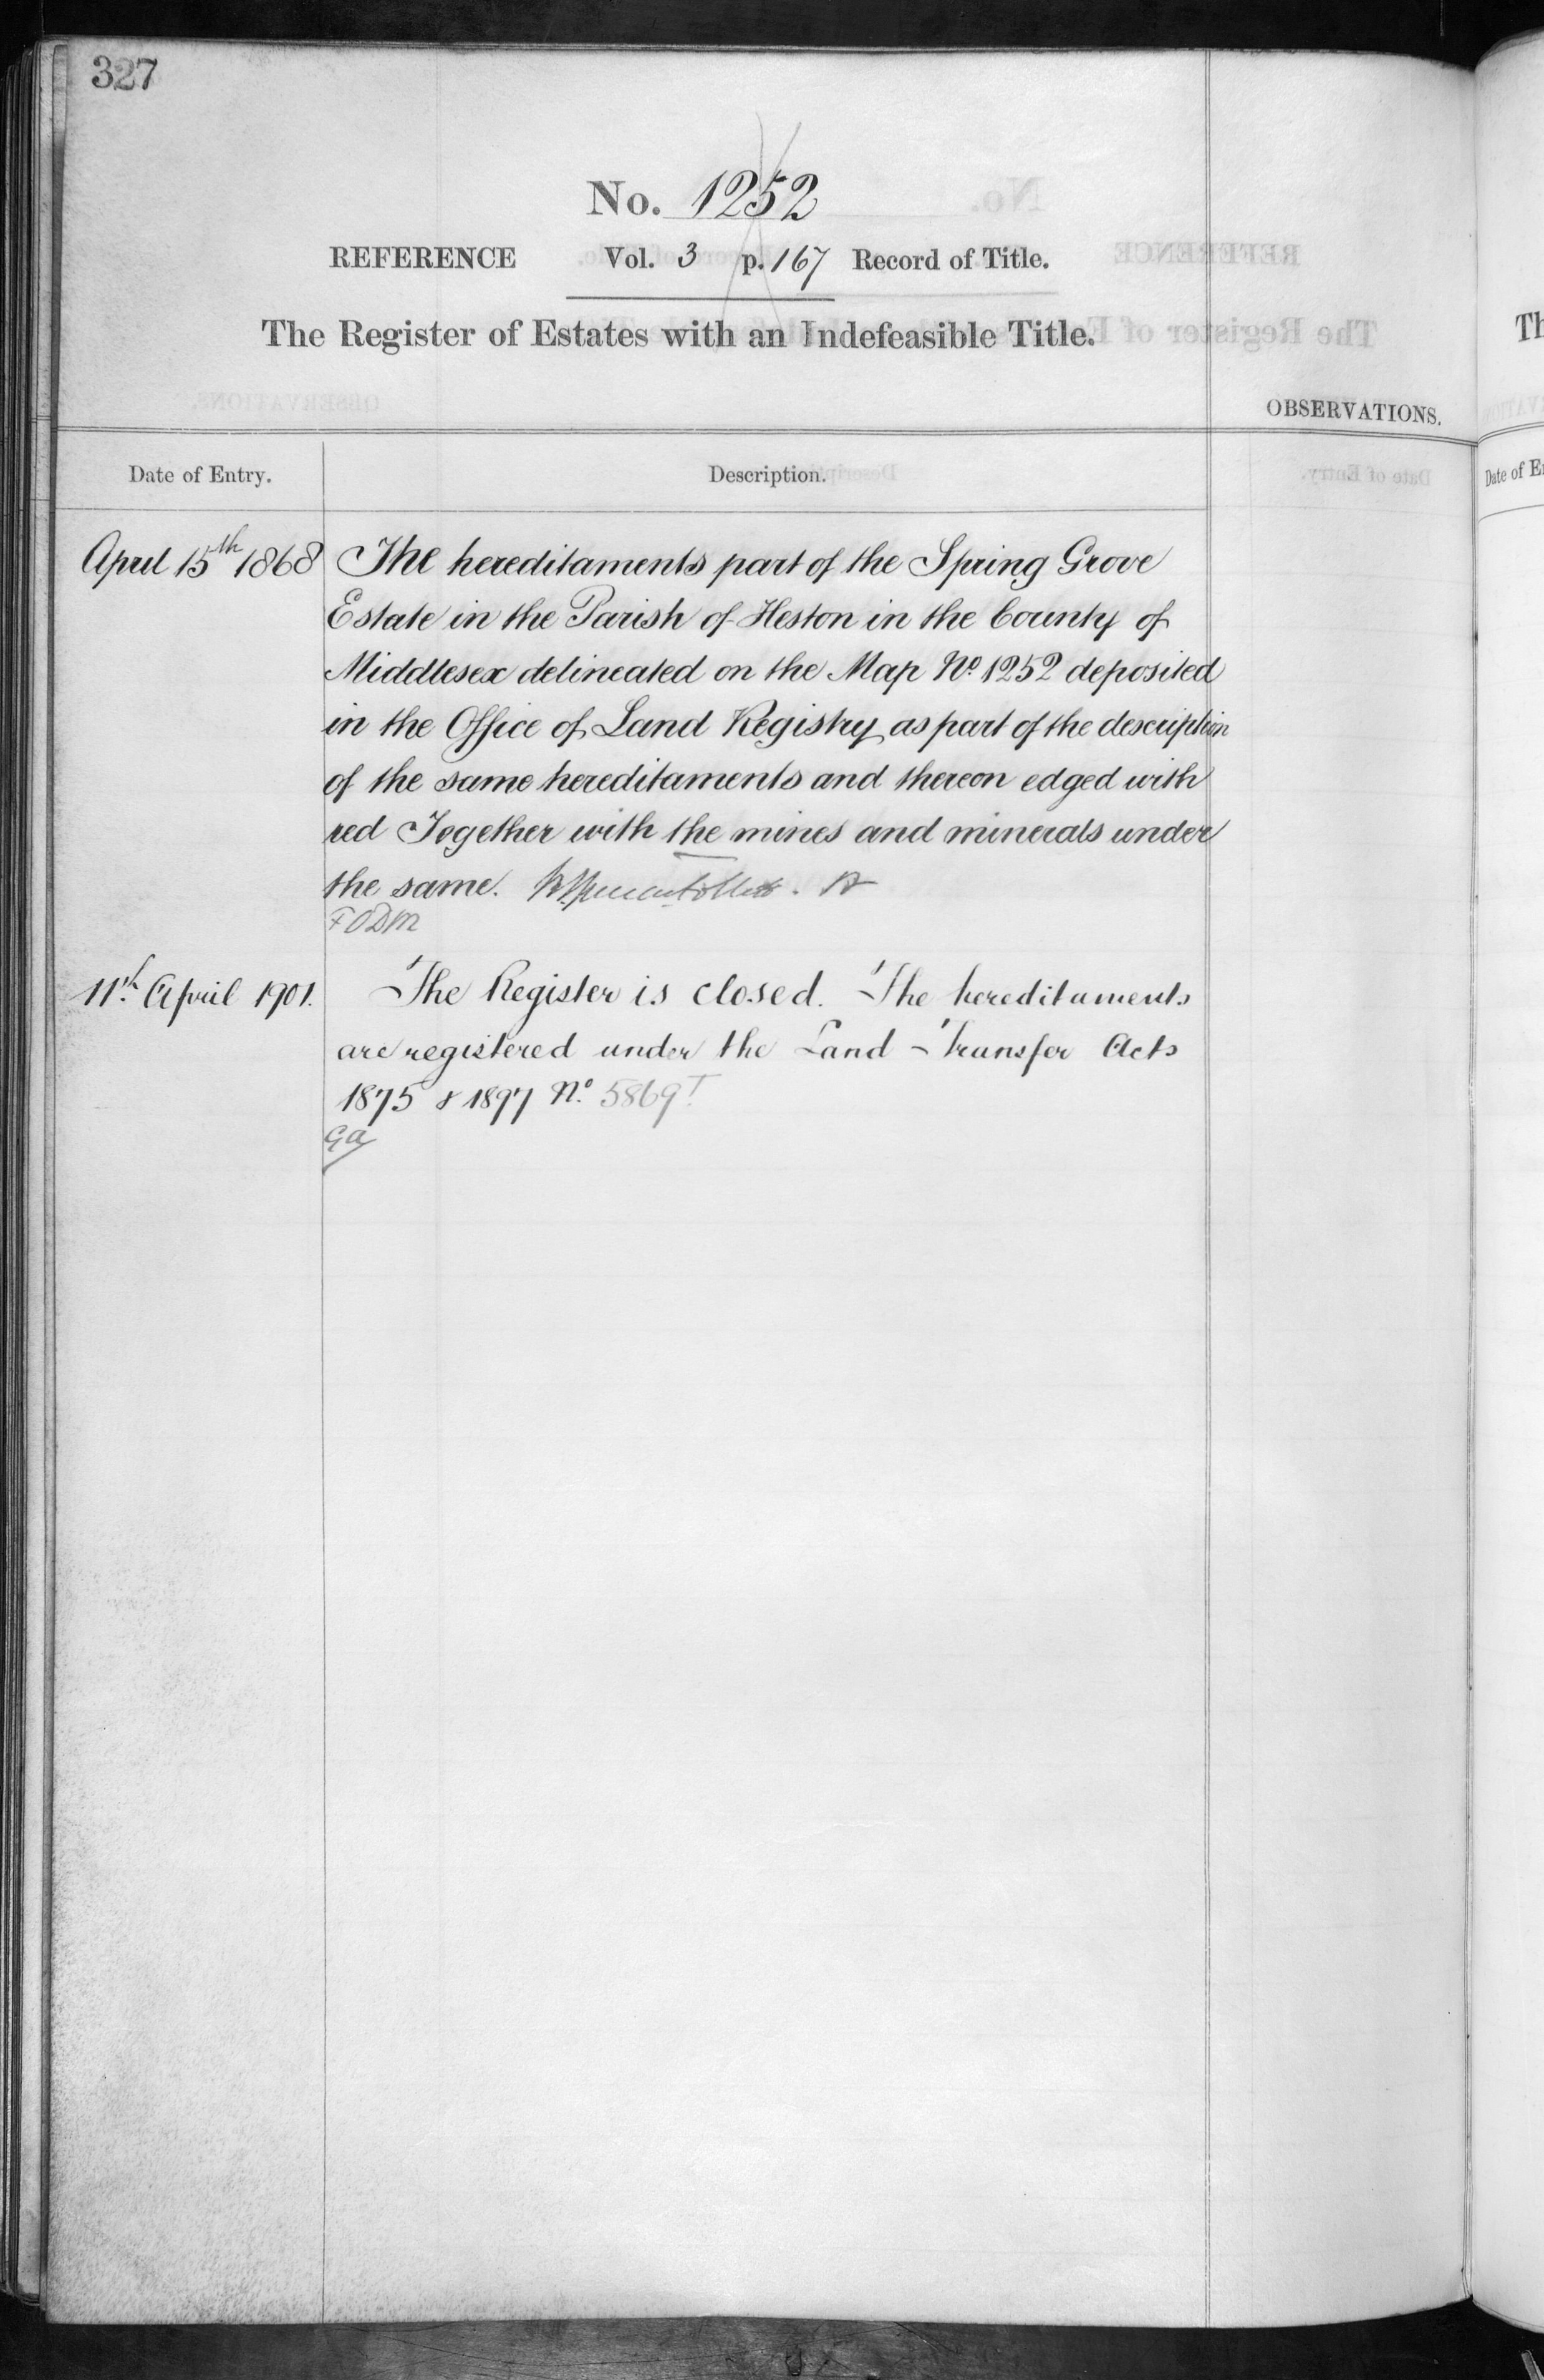 327
No. 1252
REFERENCE Vol. 3 p. 167 Record of Title.
The Register of Estates with an Indefeasible Title.
OBSERVATIONS.
Date of Entry. Description.
April 15th 1868 The hereditaments part of the Spring Grove
Estate in the Parish of Heston in the County of
Middlesex delineated on the Map No. 1252 deposited
in the Office of Land Registry as part of the description
of the same hereditaments and thereon edged with
red Together with the mines and minerals under
the same.
FODM
11th April 1901. The Register is closed. The hereditaments
are registered under the Land Transfer Acts
1875 & 1897 No. 5869T
Ga